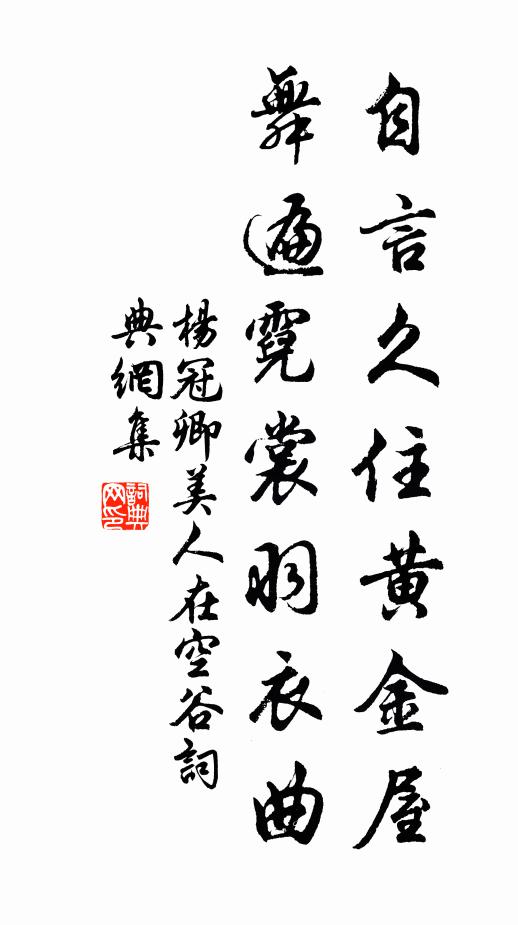 自言久住黄金屋
舞遍霓裳羽衣曲
楊冠卿美人在空谷詞
典網集
詞典网印